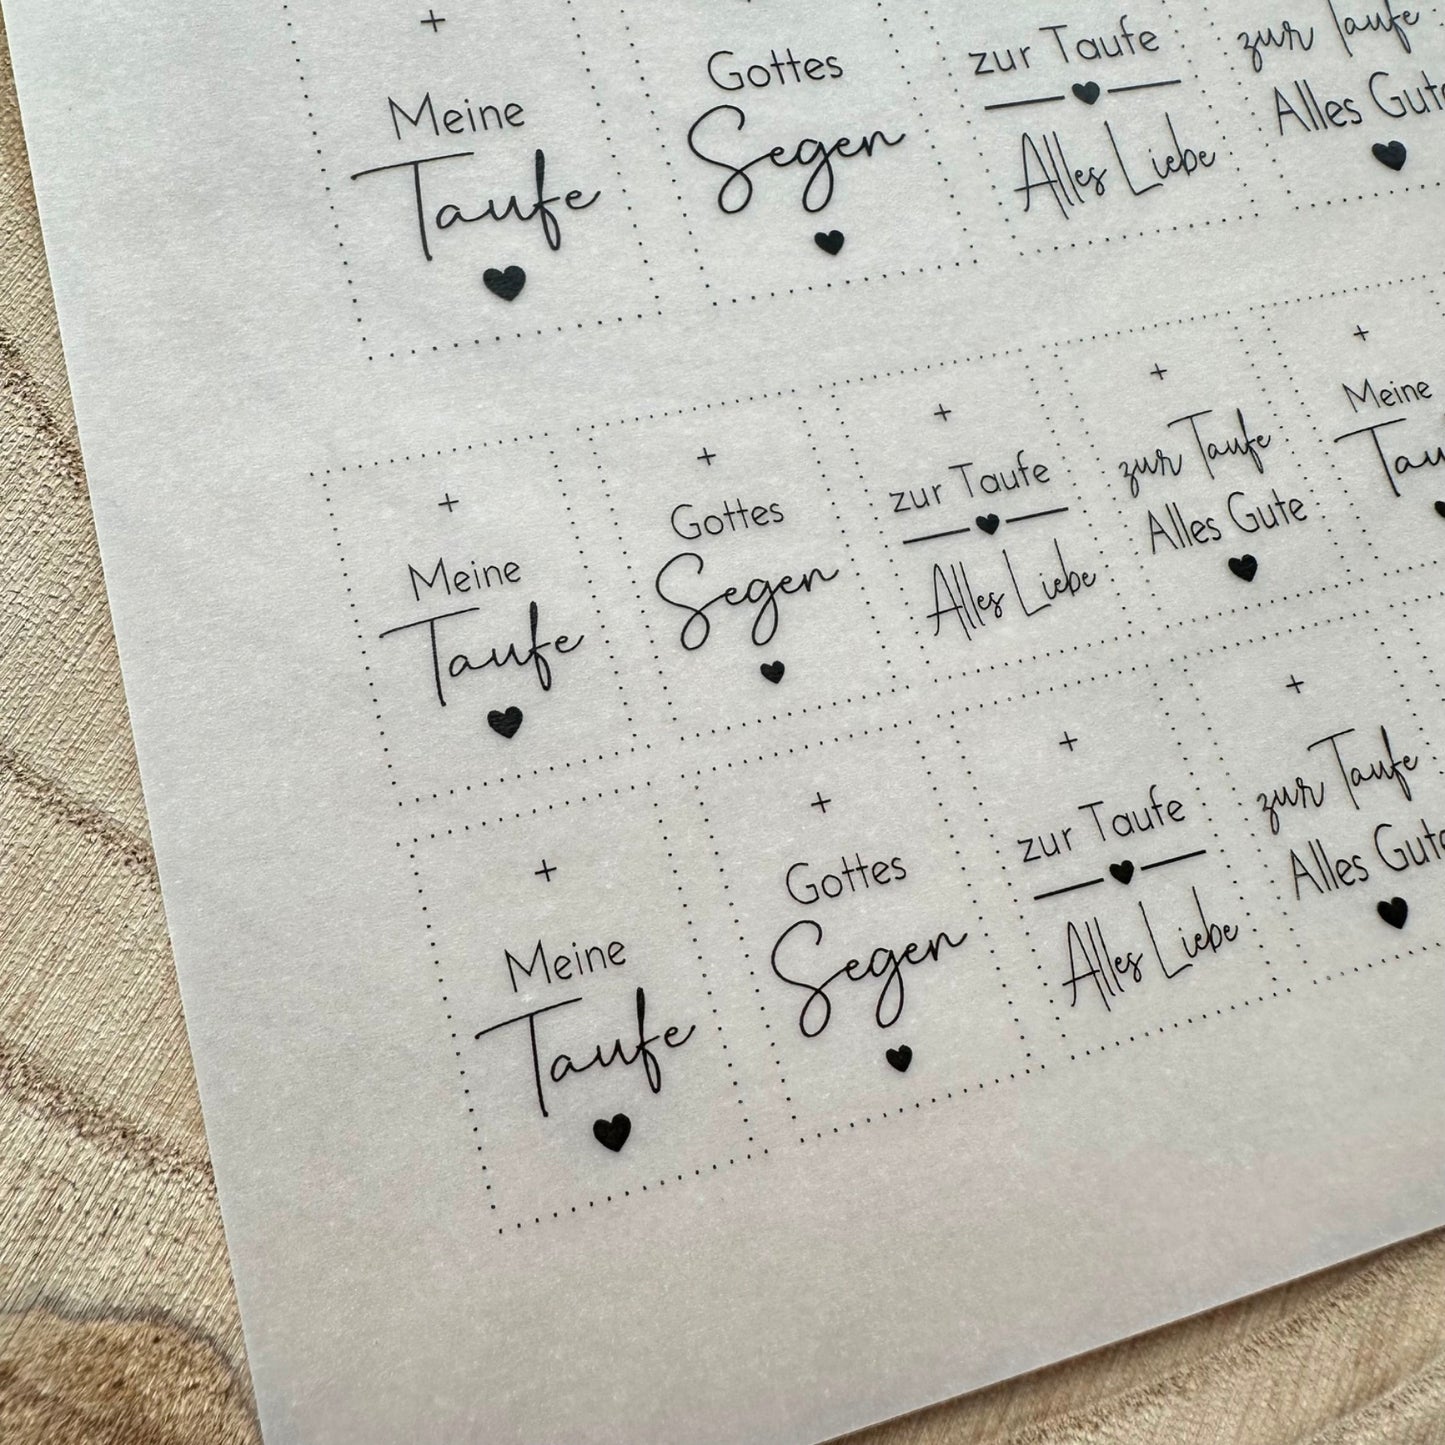 +
Meine
Taufe
Gottes
Segen
zur Taufe
Alles Liebe
zur Taufe
Alles Gute
+
Meine
Taufe
+
Gottes
Segen
+
zur Taufe
Alles Liebe
+
zur Taufe
Alles Gute
+
Meine
+
Meine
Taufe
+
Gottes
Segen
+
zur Taufe
Alles Liebe
+
zur Taufe
Alles Gute